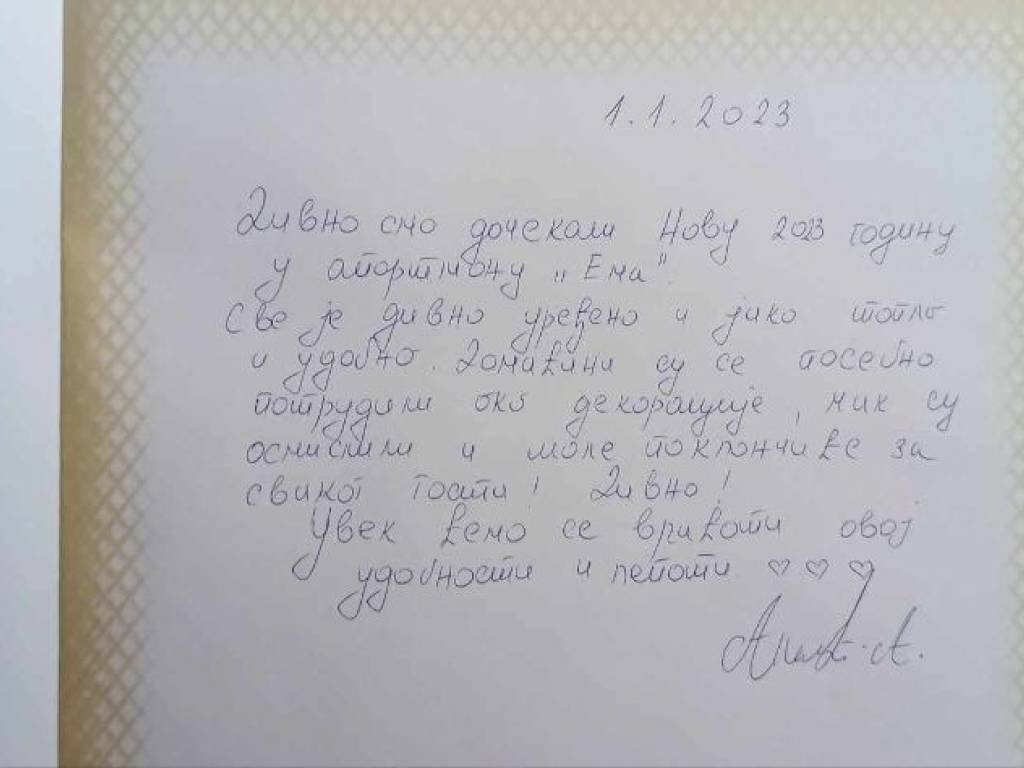 1.1.2023
Дивно смо дочекали Нову 2023 годину
у апартману „Ема".
Све је дивно уређено и јако топло
и удобно. Домаћини су се посебно
потрудили око декорације, чак су
осмислили и мале поклончиће за
сваког госта! Дивно!
Увек ћемо се враћати овој
удобности и лепоти ♡ ♡ ♡